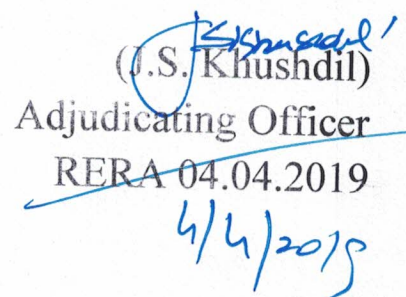 (J.S. Khushdil)
Adjudicating Officer
RERA 04.04.2019
4/4/2019